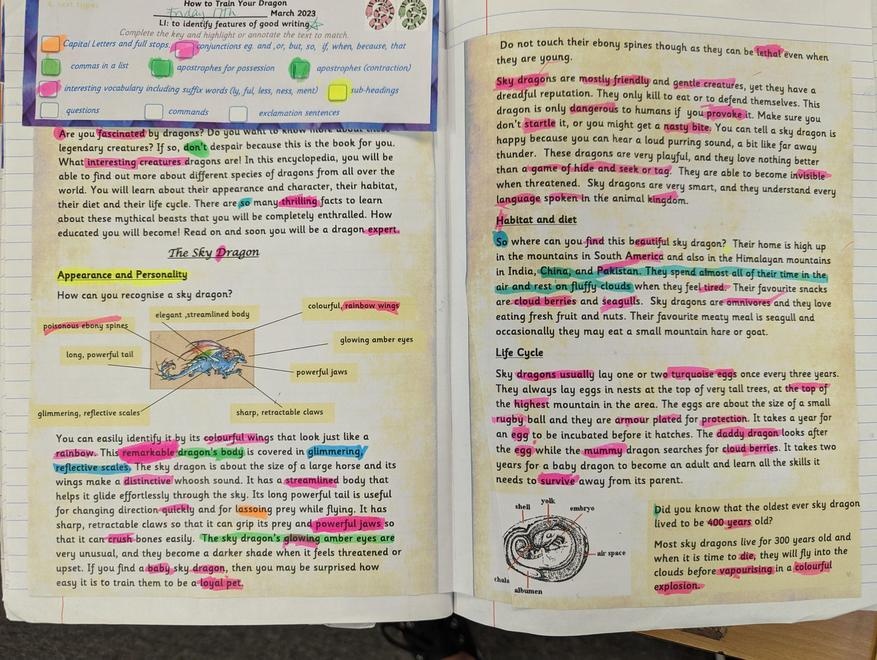 4. text types
How to Train Your Dragon
Friday 17th March 2023
LI: to identify features of good writing
Complete the key and highlight or annotate the text to match.
Capital Letters and full stops. conjunctions eg. and ,or, but, so, if, when, because, that
commas in a list apostrophes for possession apostrophes (contraction)
interesting vocabulary including suffix words (ly, ful, less, ness, ment) sub-headings
questions commands exclamation sentences
Are you fascinated by dragons? Do you want to know more about these
legendary creatures? If so, don't despair because this is the book for you.
What interesting creatures dragons are! In this encyclopedia, you will be
able to find out more about different species of dragons from all over the
world. You will learn about their appearance and character, their habitat,
their diet and their life cycle. There are so many thrilling facts to learn
about these mythical beasts that you will be completely enthralled. How
educated you will become! Read on and soon you will be a dragon expert.
The Sky Dragon
Appearance and Personality
How can you recognise a sky dragon?
elegant ,streamlined body
colourful, rainbow wings
poisonous ebony spines
glowing amber eyes
long, powerful tail
powerful jaws
glimmering, reflective scales
sharp, retractable claws
You can easily identify it by its colourful wings that look just like a
rainbow. This remarkable dragon's body is covered in glimmering,
reflective scales. The sky dragon is about the size of a large horse and its
wings make a distinctive whoosh sound. It has a streamlined body that
helps it glide effortlessly through the sky. Its long powerful tail is useful
for changing direction quickly and for lassoing prey while flying. It has
sharp, retractable claws so that it can grip its prey and powerful jaws so
that it can crush bones easily. The sky dragon's glowing amber eyes are
very unusual, and they become a darker shade when it feels threatened or
upset. If you find a baby sky dragon, then you may be surprised how
easy it is to train them to be a loyal pet.
Do not touch their ebony spines though as they can be lethal even when
they are young.
Sky dragons are mostly friendly and gentle creatures, yet they have a
dreadful reputation. They only kill to eat or to defend themselves. This
dragon is only dangerous to humans if you provoke it. Make sure you
don't startle it, or you might get a nasty bite. You can tell a sky dragon is
happy because you can hear a loud purring sound, a bit like far away
thunder. These dragons are very playful, and they love nothing better
than a game of hide and seek or tag. They are able to become invisible
when threatened. Sky dragons are very smart, and they understand every
language spoken in the animal kingdom.
Habitat and diet
So where can you find this beautiful sky dragon? Their home is high up
in the mountains in South America and also in the Himalayan mountains
in India, China, and Pakistan. They spend almost all of their time in the
air and rest on fluffy clouds when they feel tired. Their favourite snacks
are cloud berries and seagulls. Sky dragons are omnivores and they love
eating fresh fruit and nuts. Their favourite meaty meal is seagull and
occasionally they may eat a small mountain hare or goat.
Life Cycle
Sky dragons usually lay one or two turquoise eggs once every three years.
They always lay eggs in nests at the top of very tall trees, at the top of
the highest mountain in the area. The eggs are about the size of a small
rugby ball and they are armour plated for protection. It takes a year for
an egg to be incubated before it hatches. The daddy dragon looks after
the egg while the mummy dragon searches for cloud berries. It takes two
years for a baby dragon to become an adult and learn all the skills it
needs to survive away from its parent.
shell
yolk
embryo
air space
chala
albumen
Did you know that the oldest ever sky dragon
lived to be 400 years old?
Most sky dragons live for 300 years old and
when it is time to die, they will fly into the
clouds before vapourising in a colourful
explosion.